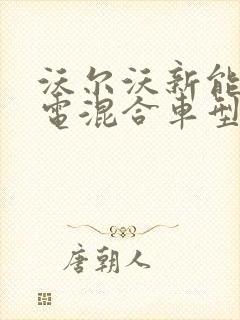 沃尔沃新能
電混合車型
唐朝人